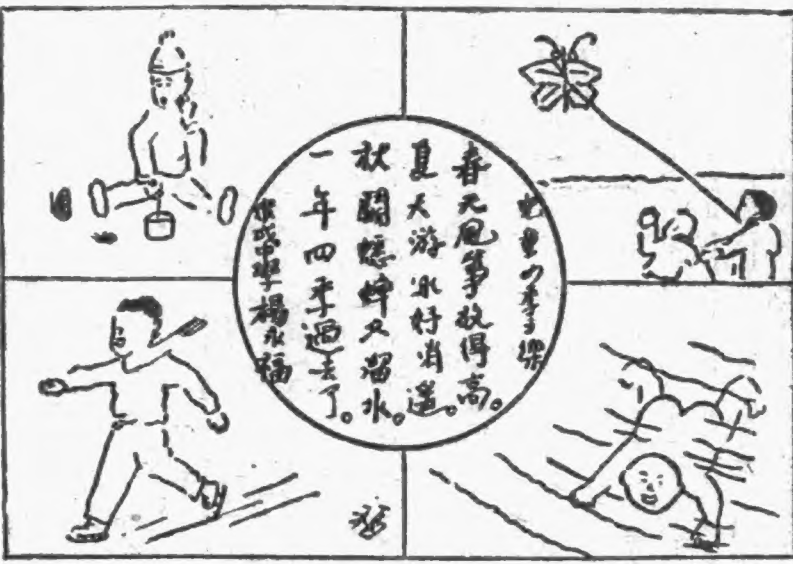 兒童四季樂
春天風箏放得高。
夏天游水好消遙。
秋鬪蟋蟀又溜冰。
一年四季過去了。
楊永福